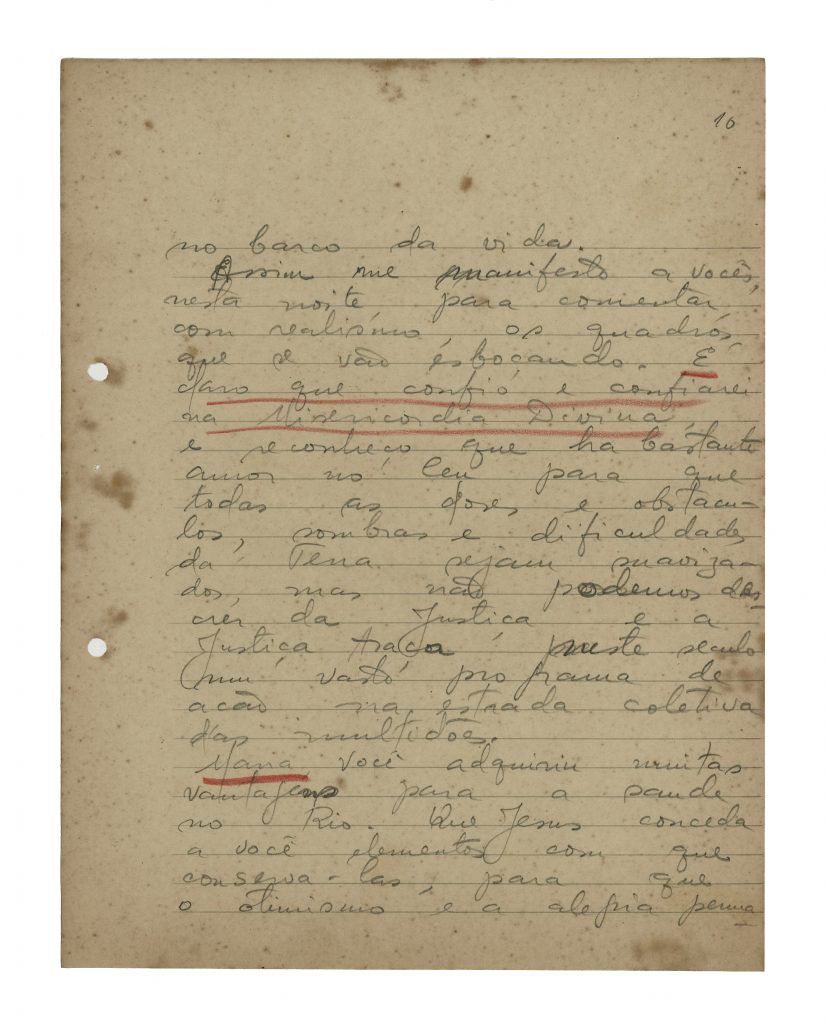 10
no barco da vida.
Assim me manifesto a vocês,
nesta noite, para comentar,
com realismo, os quadros,
que se vão esbocando. É
claro que confio e confiarei
na Misericordia Divina,
e reconheço que ha bastante
amor no Ceu para que
todas as dores e obstacu-
los, sombras e dificuldades
da Terra sejam suaviza-
dos, mas não podemos des-
crer da Justica e a
Justiça traça neste seculo
um vasto programa de
acão na estrada coletiva
das multidões.
Maria você adquiriu muitas
vantagens para a saude
no Rio. Que Jesus conceda
a você elementos com que
conserva-las, para que
o otimismo e a alegria perma